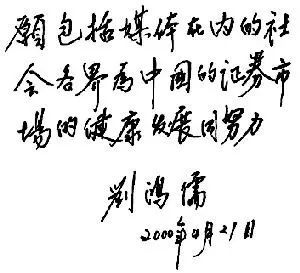 願包括媒体在内的社
会各界爲中國的证券市
場的健康发展同努力
劉鸿儒
2000年4月27日